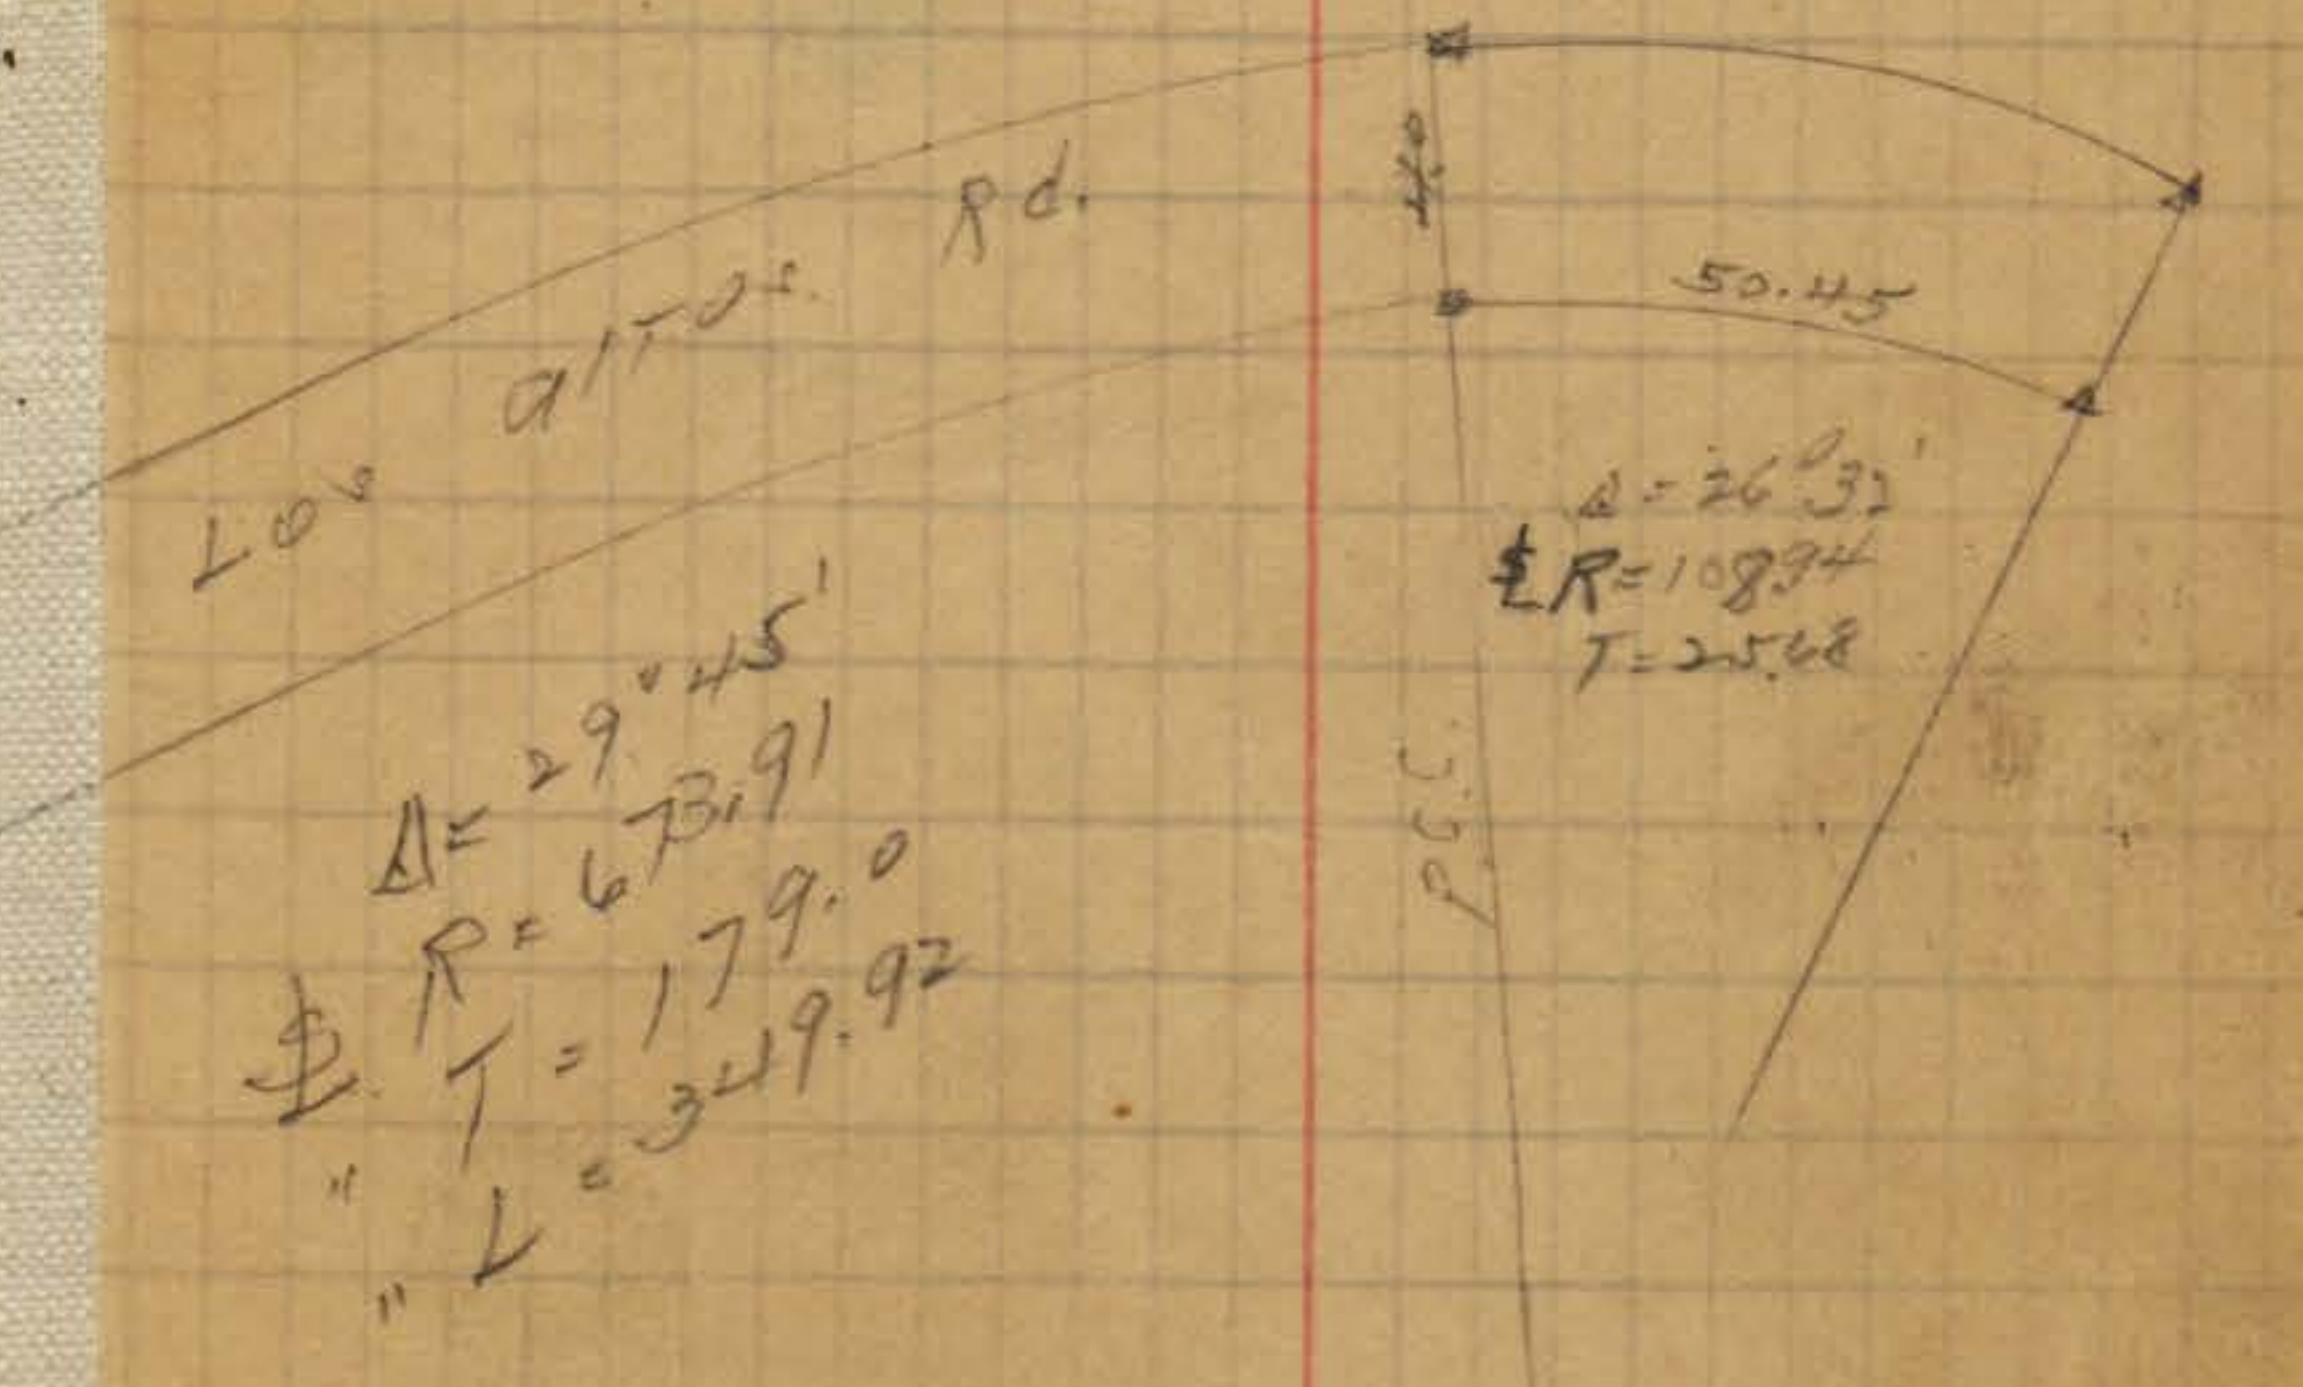 Los Altos Rd.
40
50.45
Δ = 26° 32'
℄ R = 108.94
T = 25.68
P.C.C.
Δ = 29° 45'
℄ R = 673.91
" T = 179.0
" L = 349.92